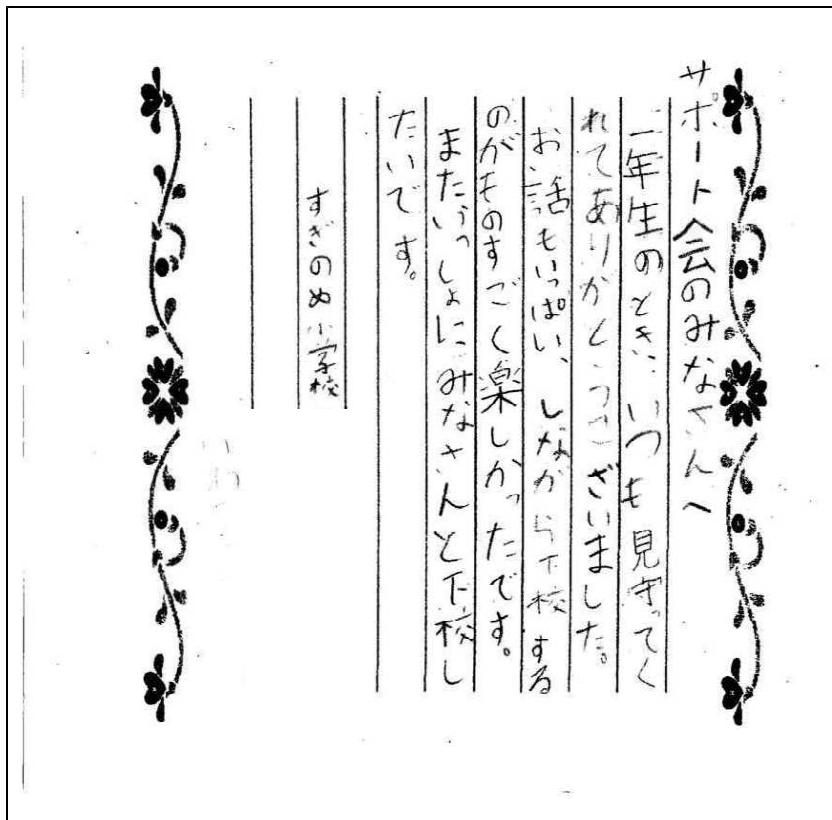 サポート会のみなさんへ
一年生のとき、いつも見守ってく
れてありがとうございました。
お話もいっぱい、しながら下校する
のがものすごく楽しかったです。
またいっしょにみなさんと下校し
たいです。
すぎのめ小学校